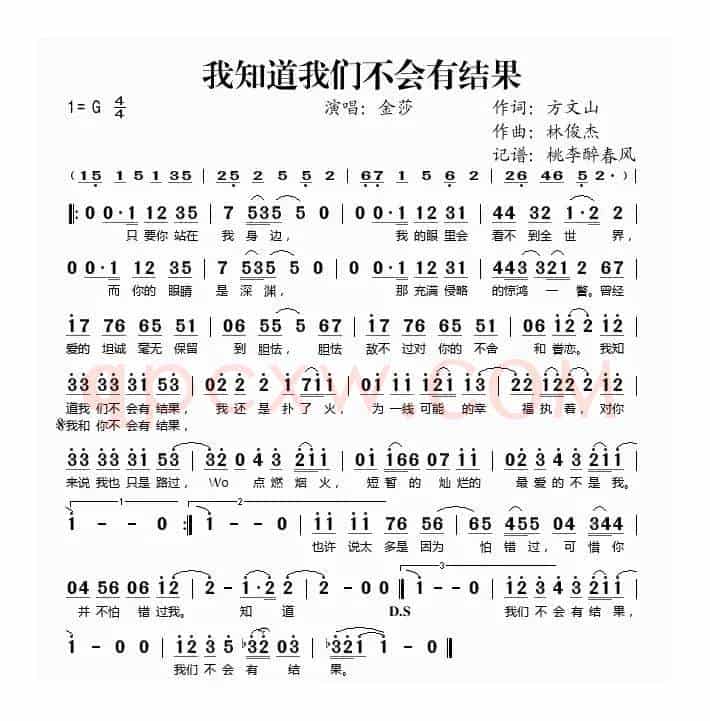 我知道我们不会有结果
1=G 4/4 演唱：金莎 作词：方文山
作曲：林俊杰
记谱：桃李醉春风
(15 1 5 1 35 | 25 2 5 5 2 | 67 1 5 6 2 | 26 46 5 2· )
‖: 0 0·1 12 35 | 7 535 5 0 | 0 0·1 12 31 | 44 32 1·2 2 |
只要你站在 我 身 边， 我的眼里会 看不到全世 界，
0 0·1 12 35 | 7 535 5 0 | 0 0·1 12 31 | 443 321 0 56 |
而 你的 眼睛 是 深 渊， 那 充满 侵略 的惊鸿 一 瞥。曾经
17 76 65 51 | 06 55 5 67 | 17 76 65 51 | 06 12 2 12 |
爱的 坦诚 毫无 保留 到 胆怯， 胆怯 敌不 过对 你的 不舍 和 眷恋。我知
33 33 31 53 | 02 2 2 1 711 | 01 11 121 13 | 21 12 2 12 |
道我 们不 会有 结果， 我 还 是 扑了 火， 为 一线 可能 的幸 福执 着，对你
𝄋我和 你不 会有 结果，
33 33 31 53 | 32 0 4 3 211 | 01 166 07 11 | 02 4 3 211 |
来说 我也 只是 路过， Wo 点 燃 烟 火， 短 暂的 灿烂的 最 爱的 不 是 我。
1 2
1 - - 0 :‖ 1 - - 0 | 11 11 76 56 | 65 455 04 344 |
也许 说太 多是 因为 怕 错 过，可 惜你
3
04 56 06 12 | 2 - 1·2 2 | 2 - 0 0 :‖ 1 - - 0 | 12 3 4 211 |
并 不怕 错 过我。 知 道 D.S 我们 不 会 有 结 果，
1 - 0 0 | 12 3 5 ♭32 03 | ♭321 1 - 0 ‖
我们 不 会 有 结 果。
qpcxw.COM